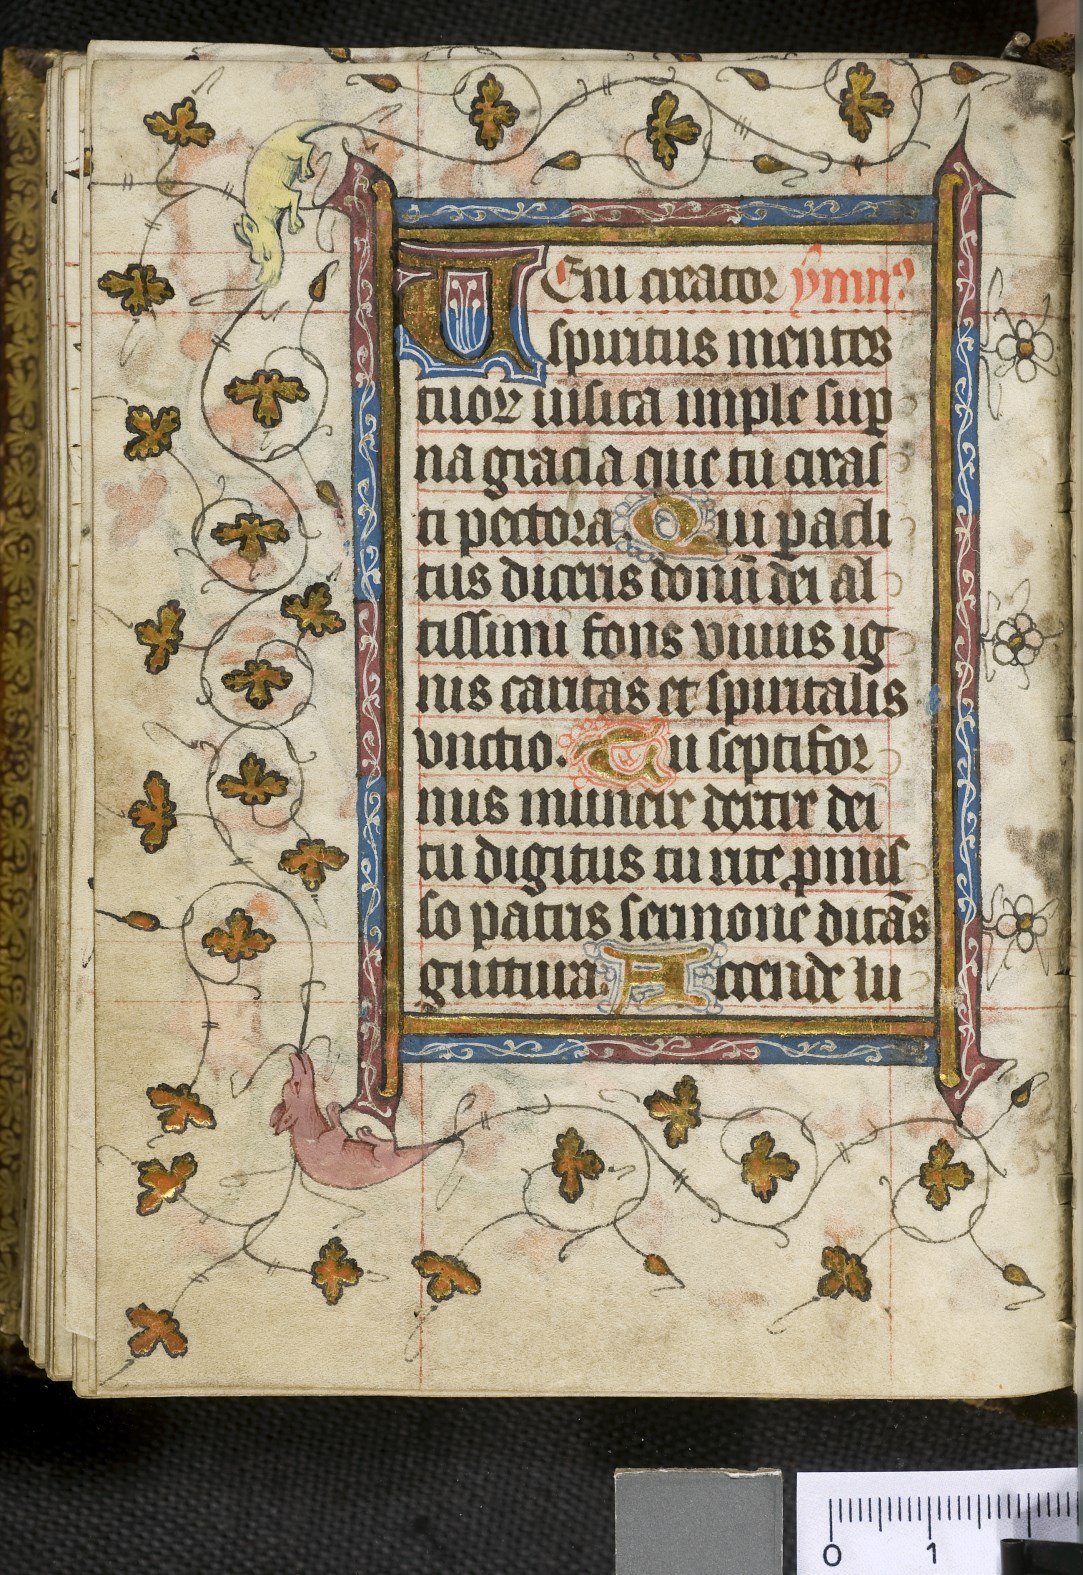 UEni creator ymnꝰ
spiritus mentes
tuoꝝ uisita imple sup̄
na gracia que tu creas
ti pectora. Qui pacli
tus diceris donū dei al
tissimi fons viuus ig
nis caritas et spiritalis
vnctio. Tu septifor
mis munere dextre dei
tu digitus tu rite ꝓmis
so patris sermone ditās
guttura. Accende lu
0 1